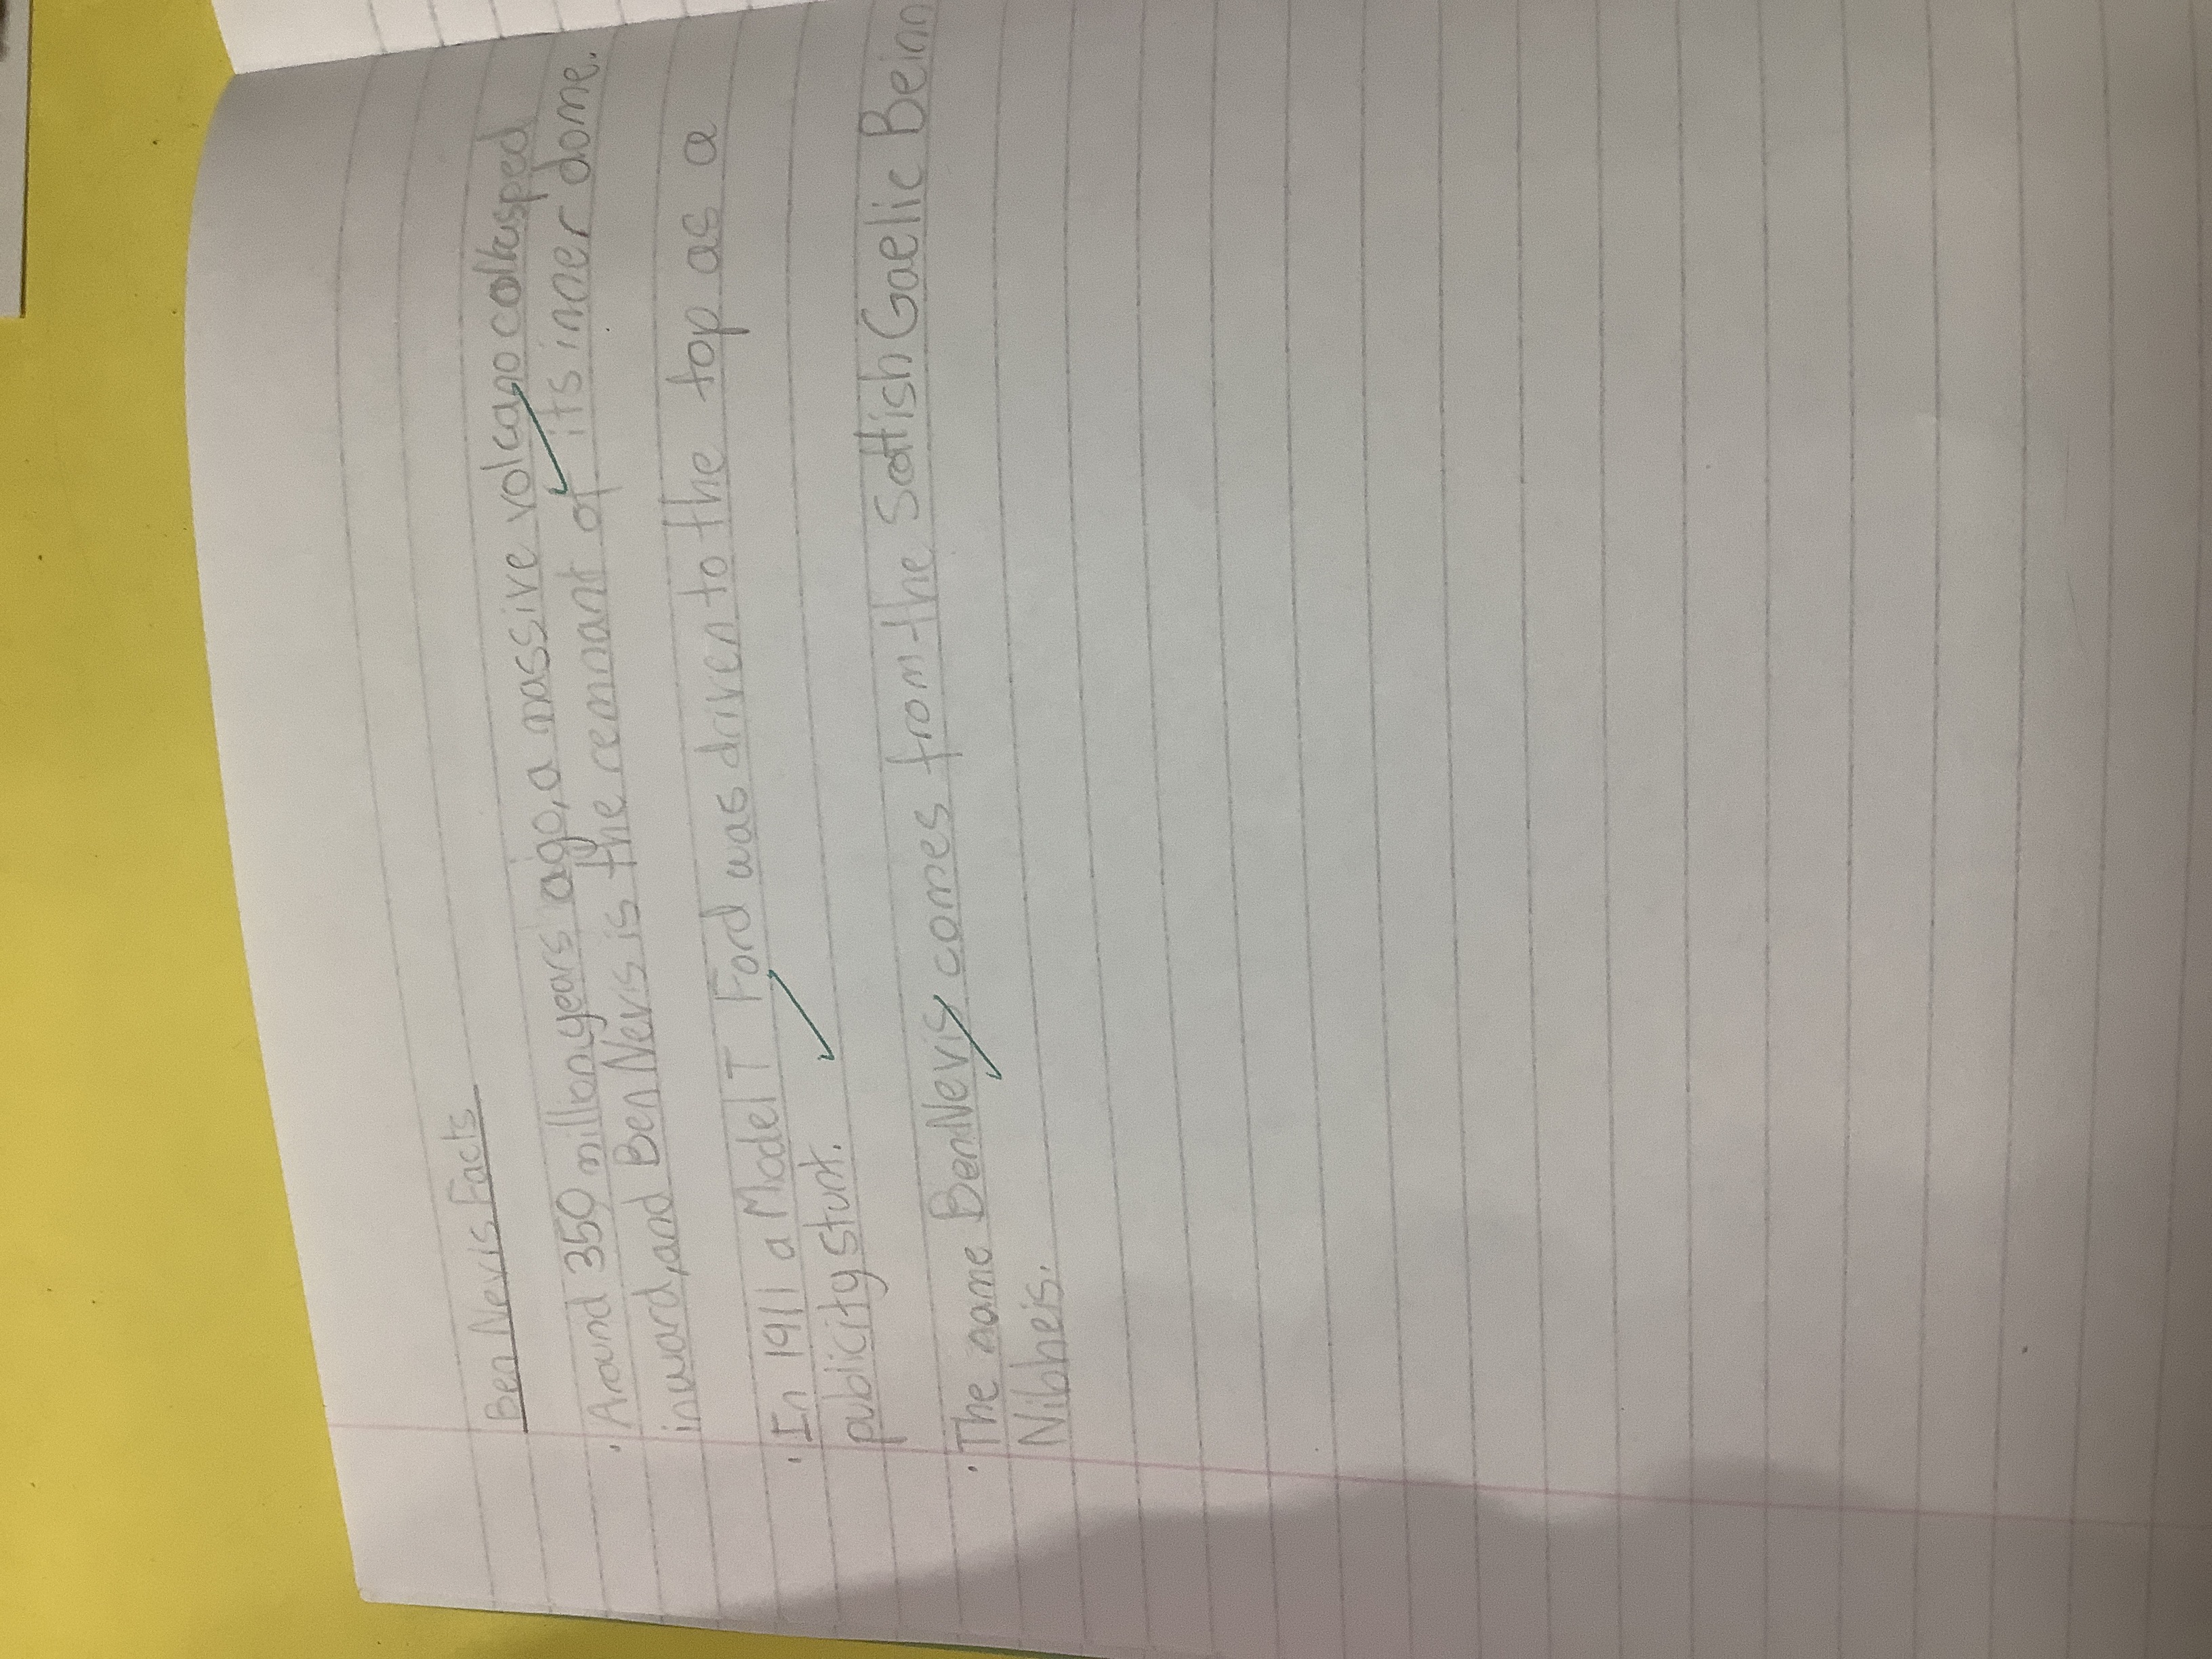 Ben Nevis Facts
· Around 350 million years ago, a massive volcano collasped
inward, and Ben Nevis is the remnant of its inner dome.
· In 1911 a Model T Ford was driven to the top as a
publicity stunt.
· The name Ben Nevis comes from the Scottish Gaelic Beinn
Nibheis.